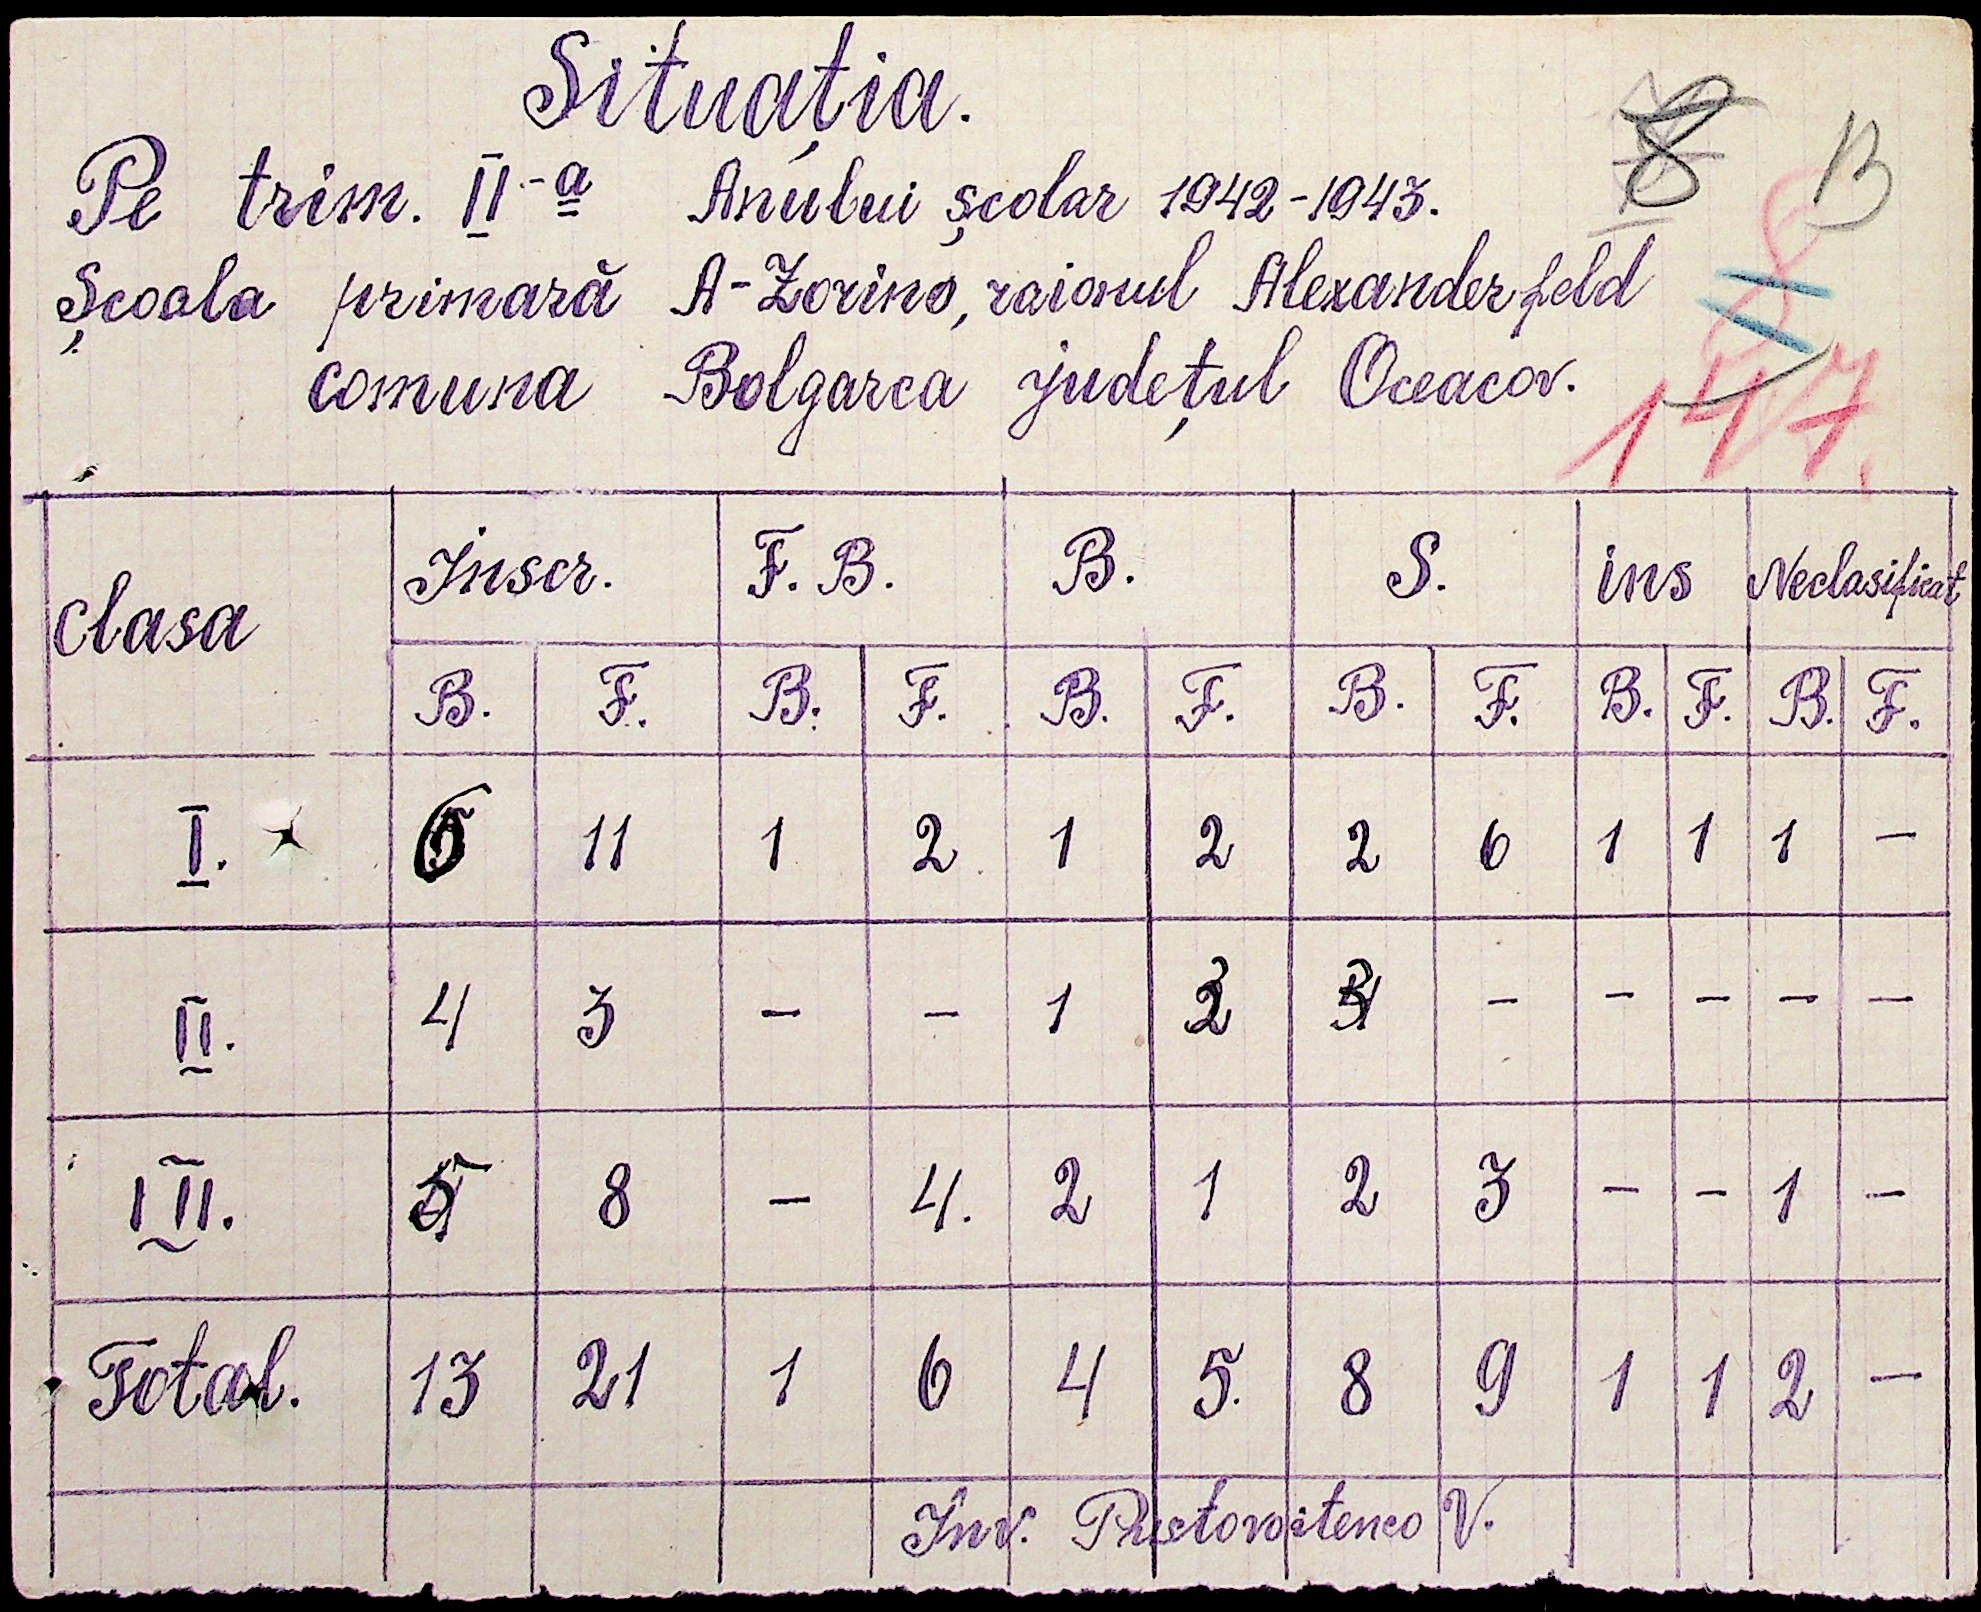 Situația.
Pe trim. II-a Anului școlar 1942-1943.
Școala primară A-Zorino, raionul Alexanderfeld
comuna Bolgarca județul Oceacov.
8 B
147.
clasa Inscr. F. B. B. S. ins Neclasificat
B. F. B. F. B. F. B. F. B. F. B. F.
I. 6 11 1 2 1 2 2 6 1 1 1 –
II. 4 3 – – 1 2 – – – – –
III. 8 – 4. 2 1 2 3 – – 1 –
Total. 13 21 1 6 4 5. 8 9 1 1 2 –
Inv. V.